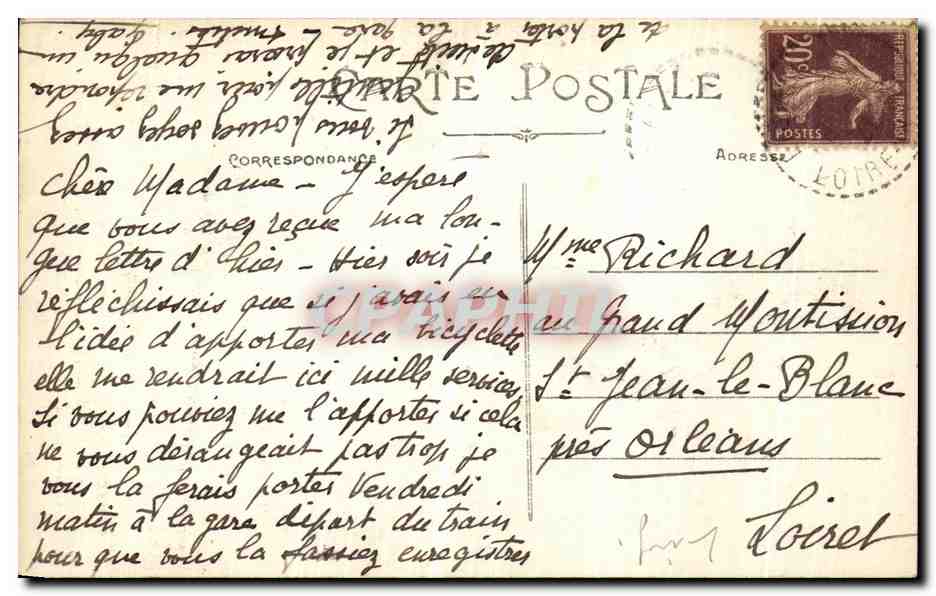 CARTE POSTALE
CORRESPONDANCE
ADRESSE
Chère Madame - J'espère
que vous avez reçue ma lon-
gue lettre d'hier - Hier soir je
réfléchissais que si j'avais eu
l'idée d'apporter ma bicyclette
elle me rendrait ici mille services,
Si vous pouviez me l'apporter si cela
ne vous dérangeait pas trop, je
vous la ferais porter Vendredi
matin à la gare départ du train
pour que vous la fassiez enregistrer
Si vous pouvez soyez assez
gentille pour me répondre
de suite et je prierai quelqu'un
de la porter à la gare - Amitiés. Gaby.
Mme Richard
au Grand Montission
St Jean-le-Blanc
près Orléans
Loiret
20c
REPUBLIQUE FRANÇAISE
POSTES
LOIRE
CPAPHIL